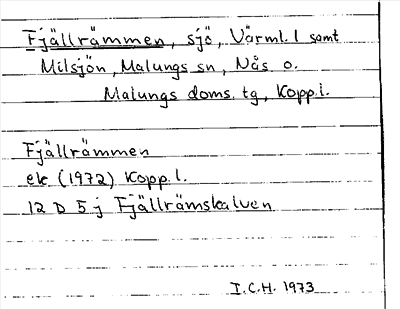 Fjällrämmen, sjö, Värml. l samt
Milsjön, Malungs sn, Nås o.
Malungs doms. tg, Kopp. l.
Fjällrämmen
ek (1972) Kopp. l.
12 D 5 j Fjällrämskalven
I.C.H. 1973